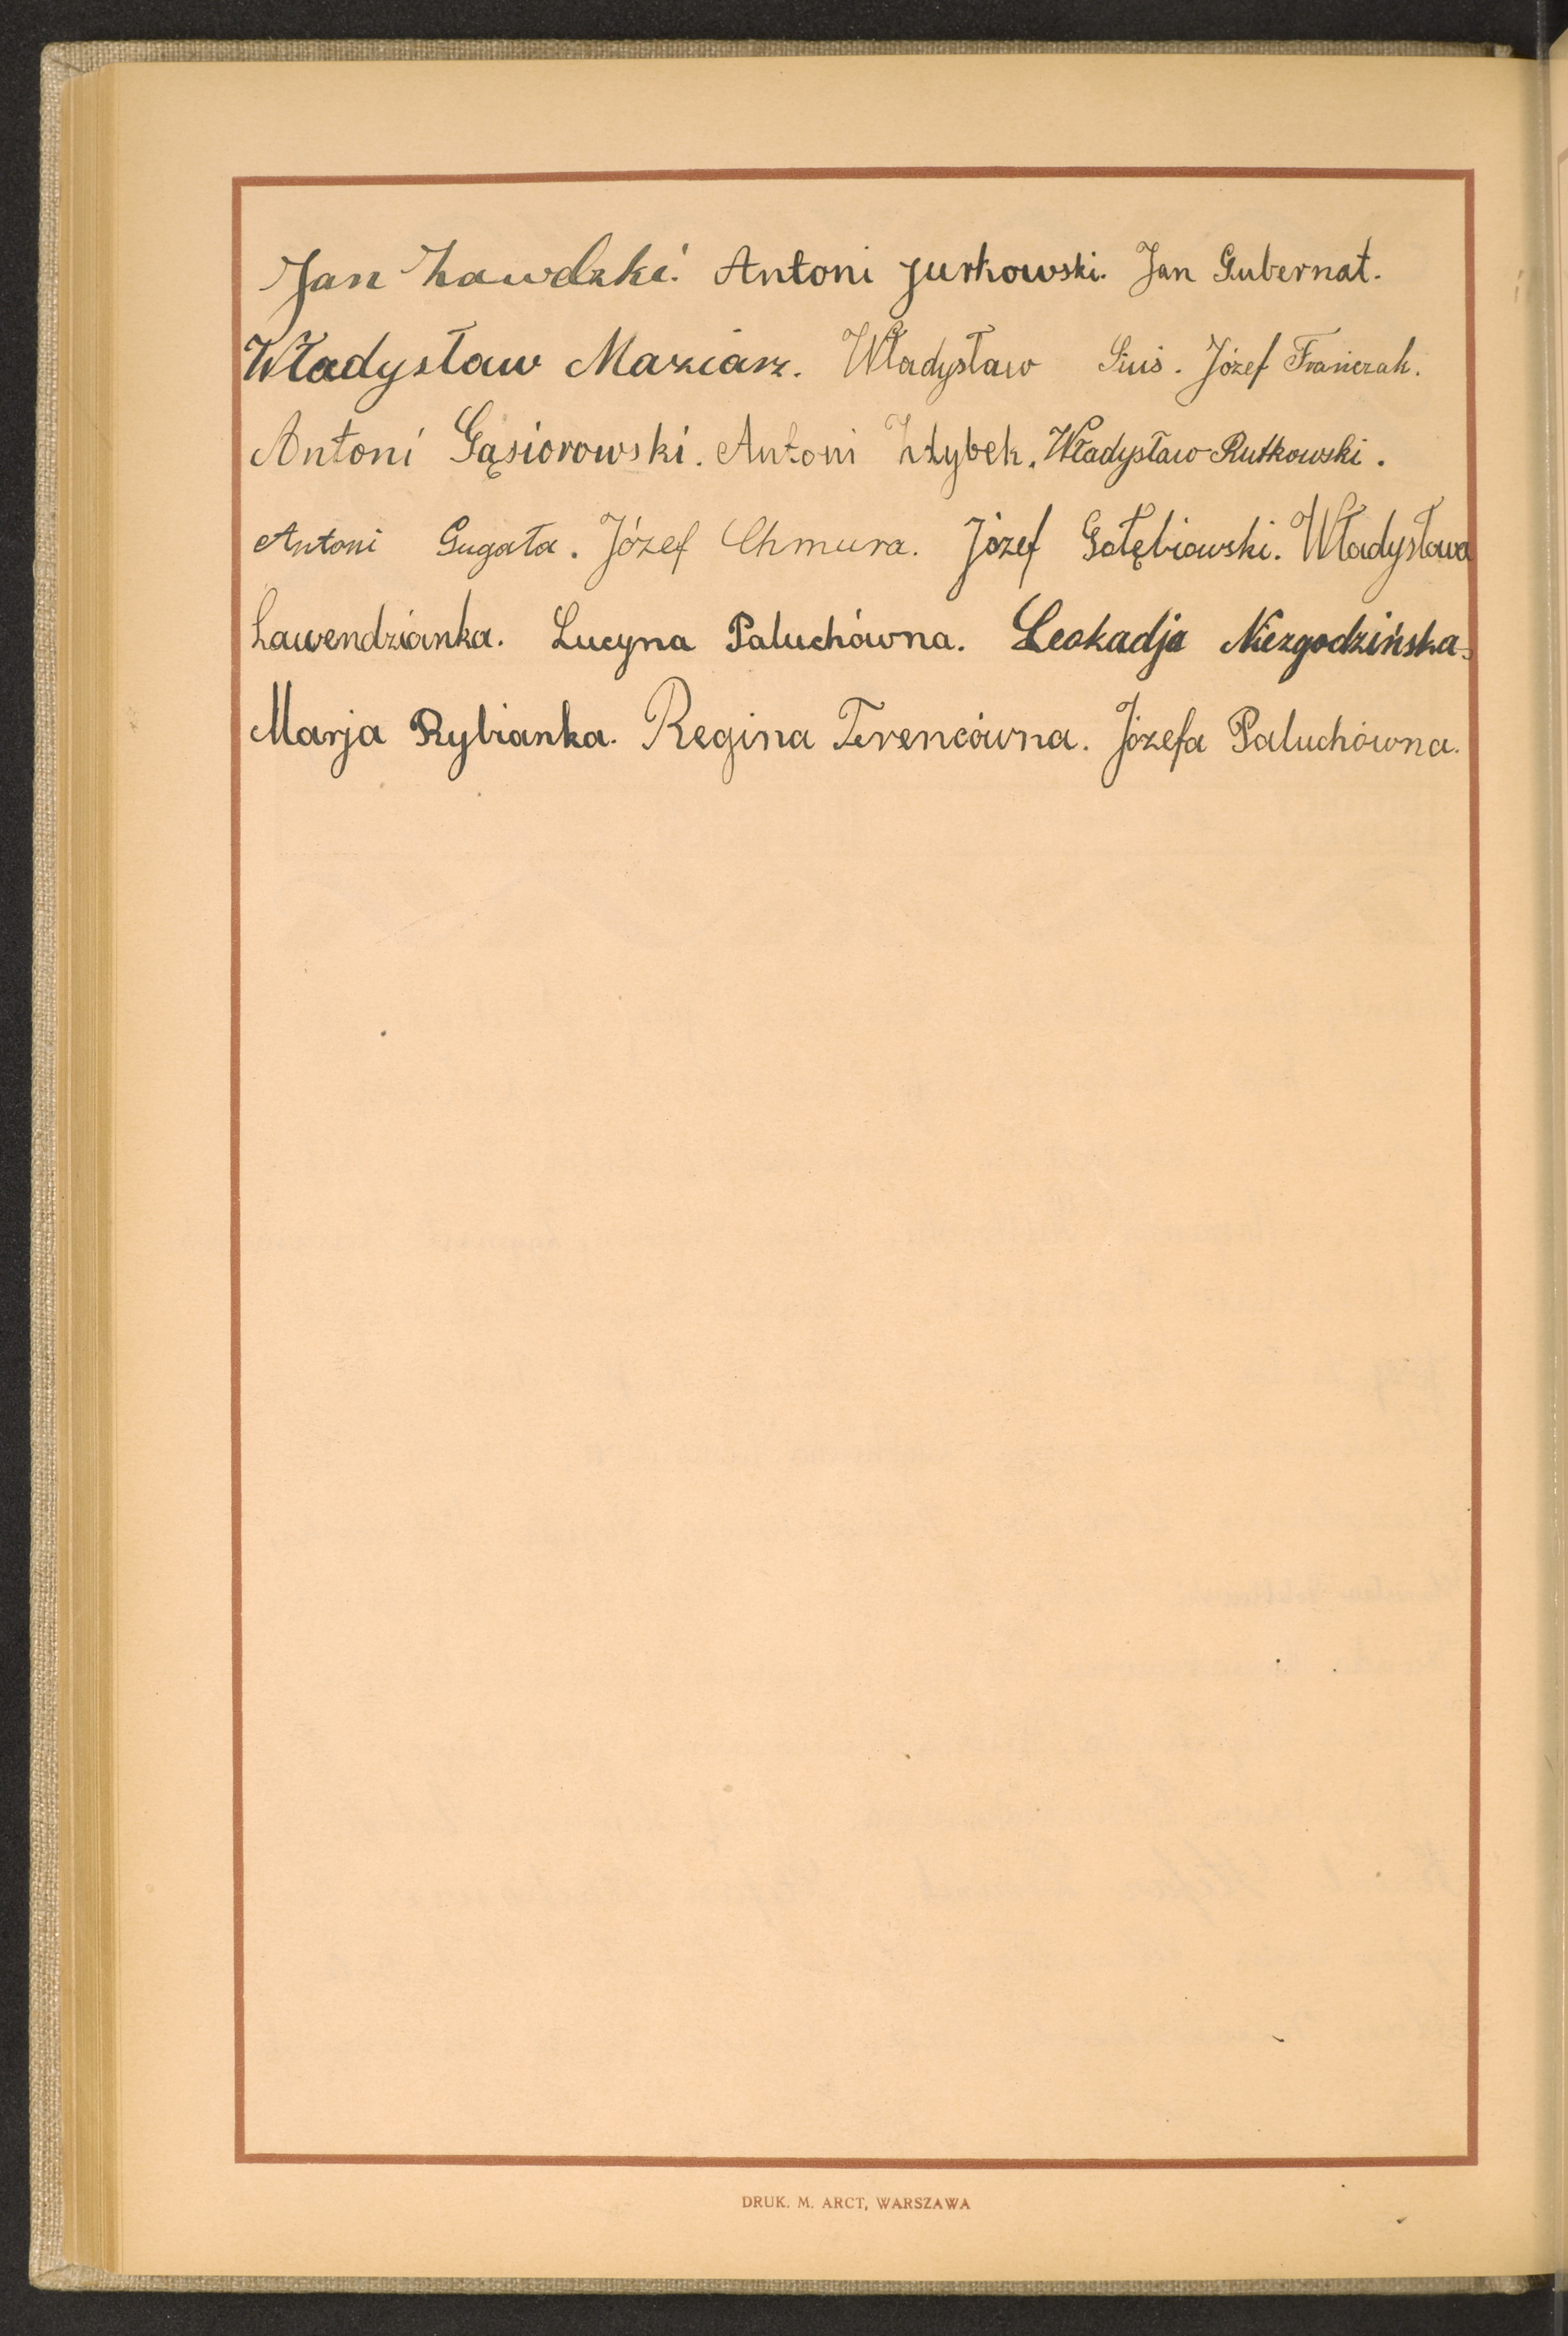 Jan Zawdzki. Antoni Jurkowski. Jan Gubernat.
Władysław Maziarz. Władysław Siuś. Józef Frańczak.
Antoni Gąsiorowski. Antoni Władysław Rutkowski.
Antoni Gugała. Józef Chmura. Józef Gołębiowski. Władysława
Lawendzianka. Lucyna Paluchówna. Leokadja Niezgodzińska.
Marja Rybianka. Regina Terencówna. Józefa Paluchówna.
DRUK. M. ARCT, WARSZAWA